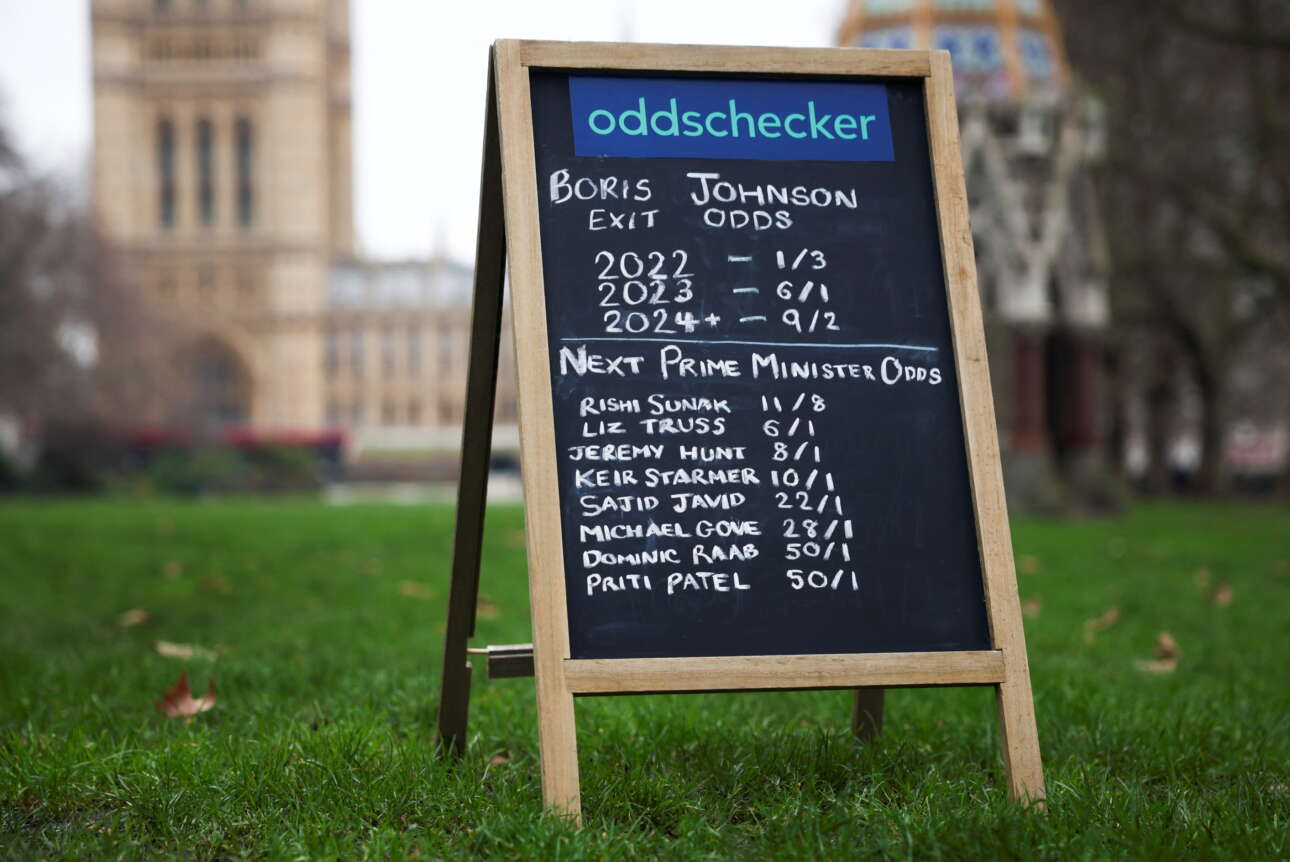 oddschecker
BORIS JOHNSON
EXIT ODDS
2022 - 1/3
2023 - 6/1
2024+ - 9/2
NEXT PRIME MINISTER ODDS
RISHI SUNAK 11/8
LIZ TRUSS 6/1
JEREMY HUNT 8/1
KEIR STARMER 10/1
SAJID JAVID 22/1
MICHAEL GOVE 28/1
DOMINIC RAAB 50/1
PRITI PATEL 50/1